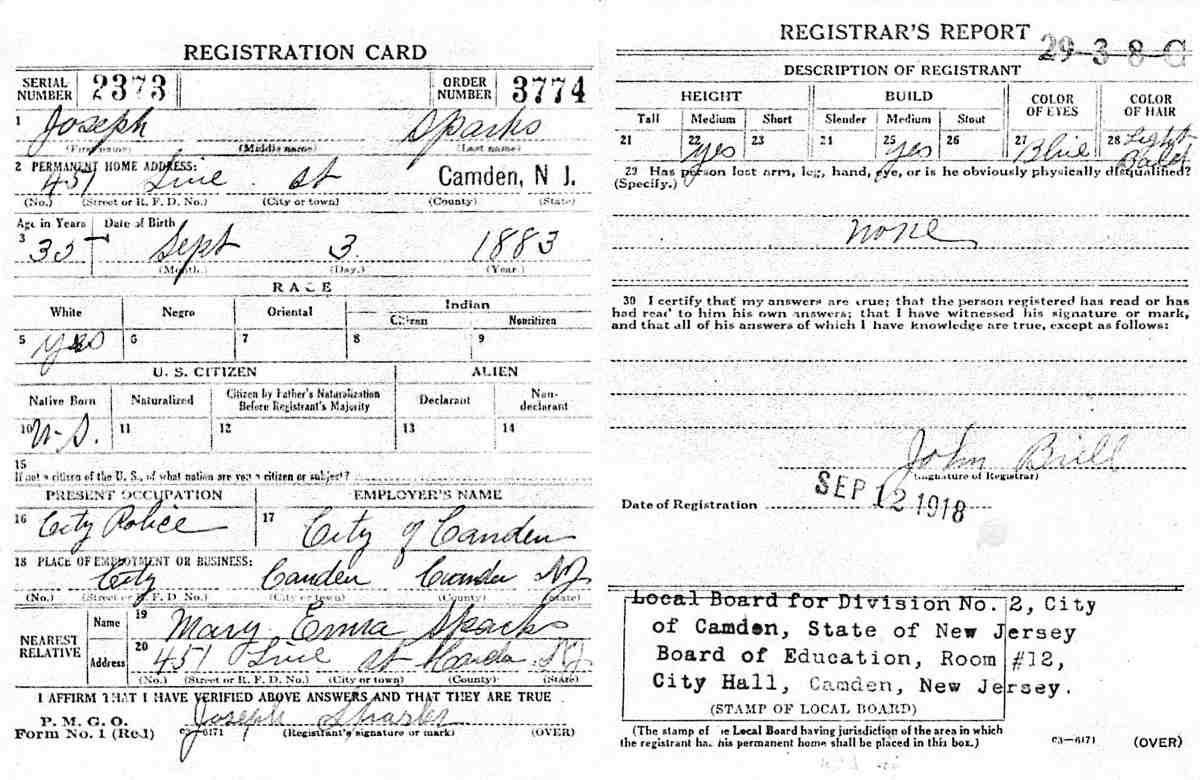 REGISTRATION CARD
SERIAL NUMBER 2373 ORDER NUMBER 3774
1 Joseph Sparks
(First name) (Middle name) (Last name)
2 PERMANENT HOME ADDRESS:
451 Line St Camden, N J.
(No.) (Street or R. F. D. No.) (City or town) (County) (State)
Age in Years Date of Birth
3 35 Sept 3. 1883
(Month.) (Day.) (Year.)
RACE
White Negro Oriental Indian
Citizen Noncitizen
5 yes 6 7 8 9
U. S. CITIZEN ALIEN
Native Born Naturalized Citizen by Father's Naturalization Before Registrant's Majority Declarant Non-declarant
10 U.S. 11 12 13 14
15
If not a citizen of the U. S., of what nation are you a citizen or subject?
PRESENT OCCUPATION EMPLOYER'S NAME
16 City Police 17 City of Camden
18 PLACE OF EMPLOYMENT OR BUSINESS:
City Camden Camden NJ
(No.) (Street or R. F. D. No.) (City or town) (County) (State)
NEAREST RELATIVE Name 19 Mary Emma Sparks
Address 20 451 Line St Camden NJ
(No.) (Street or R. F. D. No.) (City or town) (County) (State)
I AFFIRM THAT I HAVE VERIFIED ABOVE ANSWERS AND THAT THEY ARE TRUE
P. M. G. O.
Form No. 1 (Red) C3-6171 Joseph Sparks (Registrant's signature or mark) (OVER)
REGISTRAR'S REPORT
29-3-8-C
DESCRIPTION OF REGISTRANT
HEIGHT BUILD COLOR OF EYES COLOR OF HAIR
Tall Medium Short Slender Medium Stout
21 22 Yes 23 24 25 yes 26 27 Blue 28 Light Bald
29 Has person lost arm, leg, hand, eye, or is he obviously physically disqualified?
(Specify.)
none
30 I certify that my answers are true; that the person registered has read or has
had read to him his own answers; that I have witnessed his signature or mark,
and that all of his answers of which I have knowledge are true, except as follows:
John Brill
(Signature of Registrar)
Date of Registration SEP 12 1918
Local Board for Division No. 2, City
of Camden, State of New Jersey
Board of Education, Room #12,
City Hall, Camden, New Jersey.
(STAMP OF LOCAL BOARD)
(The stamp of the Local Board having jurisdiction of the area in which
the registrant has his permanent home shall be placed in this box.)
C3-6171 (OVER)